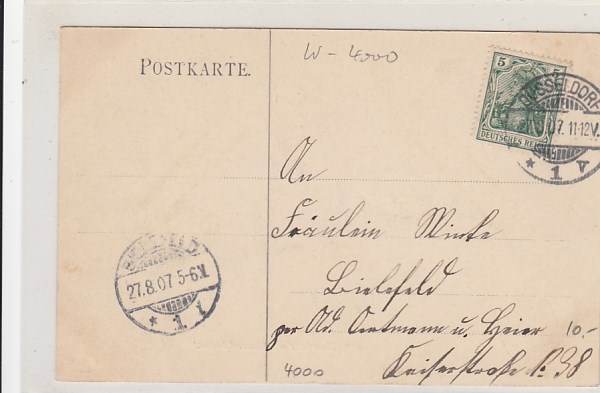 W - 4000
POSTKARTE.
5
DEUTSCHES REICH
DÜSSELDORF
.07. 11-12V.
* 1 v
An
Fräulein Winke
Bielefeld
per Ad. Oertmann u. Heier
Kaiserstraße No. 38
BIELEFELD
27.8.07 5-6.V.
* 1 l
10.-
4000